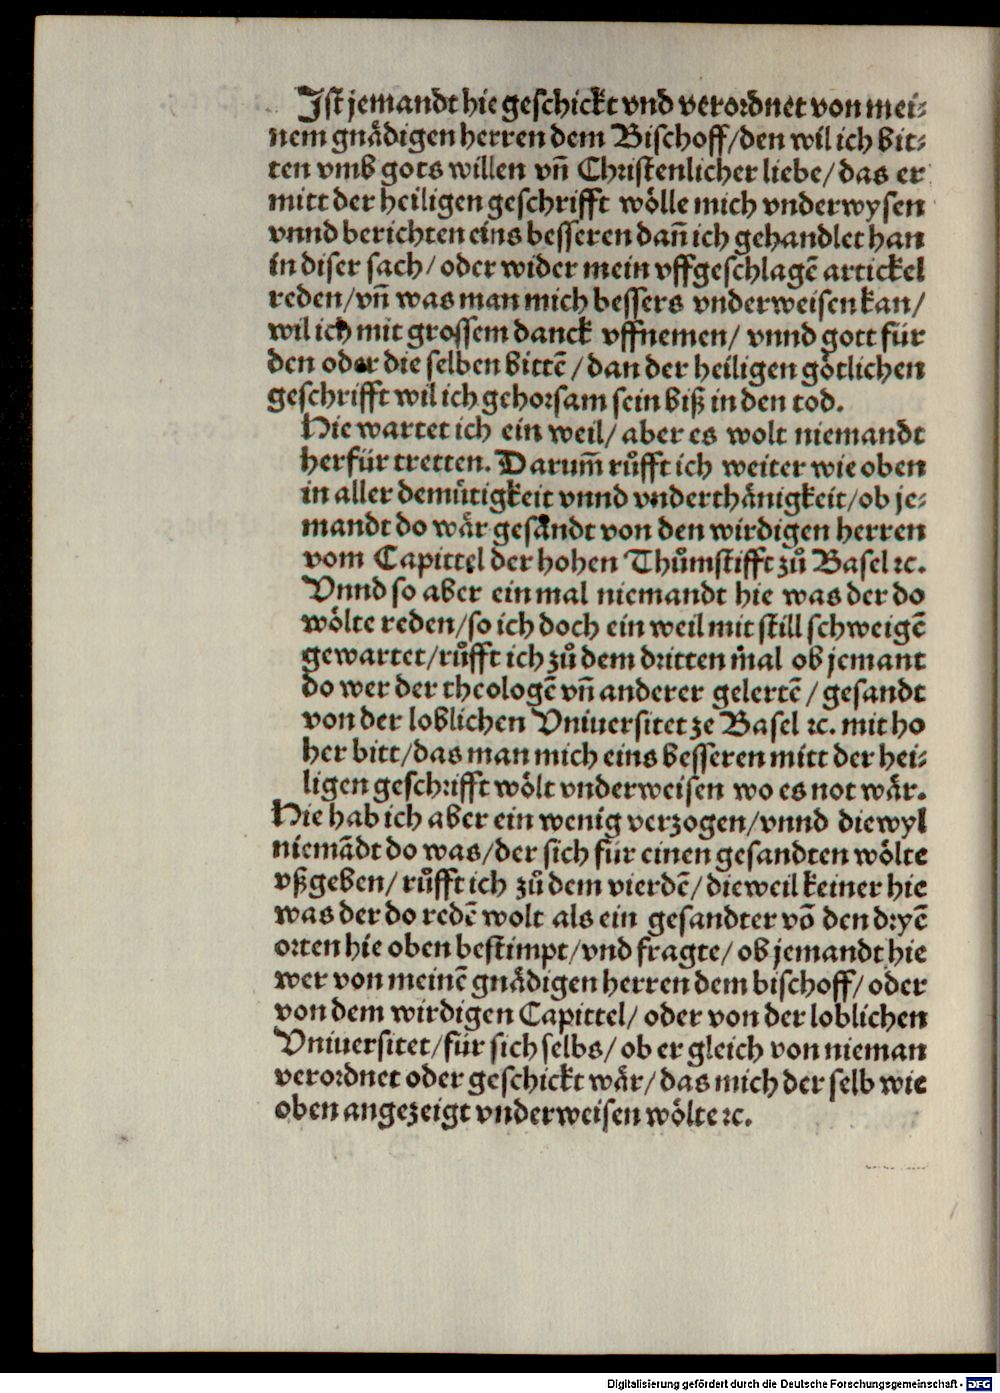 Iſt jemandt hie geſchickt vnd verordnet von mei⸗
nem gnaͤdigen herren dem Biſchoff/den wil ich bit⸗
ten vmb gots willen vn̄ Chriſtenlicher liebe/ das er
mitt der heiligen geſchrifft woͤlle mich vnderwyſen
vnnd berichten eins beſſeren dan̄ ich gehandlet han
in diſer ſach/ oder wider mein vffgeſchlagē artickel
reden/vn̄ was man mich beſſers vnderweiſen kan/
wil ich mit groſſem danck vffnemen/ vnnd gott für
den oder die ſelben bittē/ dan der heiligen goͤtlichen
geſchrifft wil ich gehorſam ſein biß in den tod.
Hie wartet ich ein weil/ aber es wolt niemandt
herfür tretten. Darum̄ ruͦfft ich weiter wie oben
in aller demuͤtigkeit vnnd vnderthaͤnigkeit/ob je⸗
mandt do waͤr geſandt von den wirdigen herren
vom Capittel der hohen Thuͦmſtifft zuͦ Baſel ꝛc.
Vnnd ſo aber ein mal niemandt hie was der do
woͤlte reden/ſo ich doch ein weil mit ſtill ſchweigē
gewartet/ruͦfft ich zuͦ dem dritten mal ob jemant
do wer der theologē vn̄ anderer gelertē/ geſandt
von der loblichen Vniuerſitet ze Baſel ꝛc. mit ho
her bitt/das man mich eins beſſeren mitt der hei⸗
ligen geſchrifft woͤlt vnderweiſen wo es not waͤr.
Hie hab ich aber ein wenig verzogen/vnnd diewyl
niemādt do was/der ſich für einen geſandten woͤlte
vßgeben/ ruͦfft ich zuͦ dem vierdē/ dieweil keiner hie
was der do redē wolt als ein geſandter vō den dryē
orten hie oben beſtimpt/vnd fragte/ ob jemandt hie
wer von meinē gnaͤdigen herren dem biſchoff/ oder
von dem wirdigen Capittel/ oder von der loblichen
Vniuerſitet/für ſich ſelbs/ ob er gleich von nieman
verordnet oder geſchickt waͤr/ das mich der ſelb wie
oben angezeigt vnderweiſen woͤlte ꝛc.
Digitalisierung gefördert durch die Deutsche Forschungsgemeinschaft - DFG